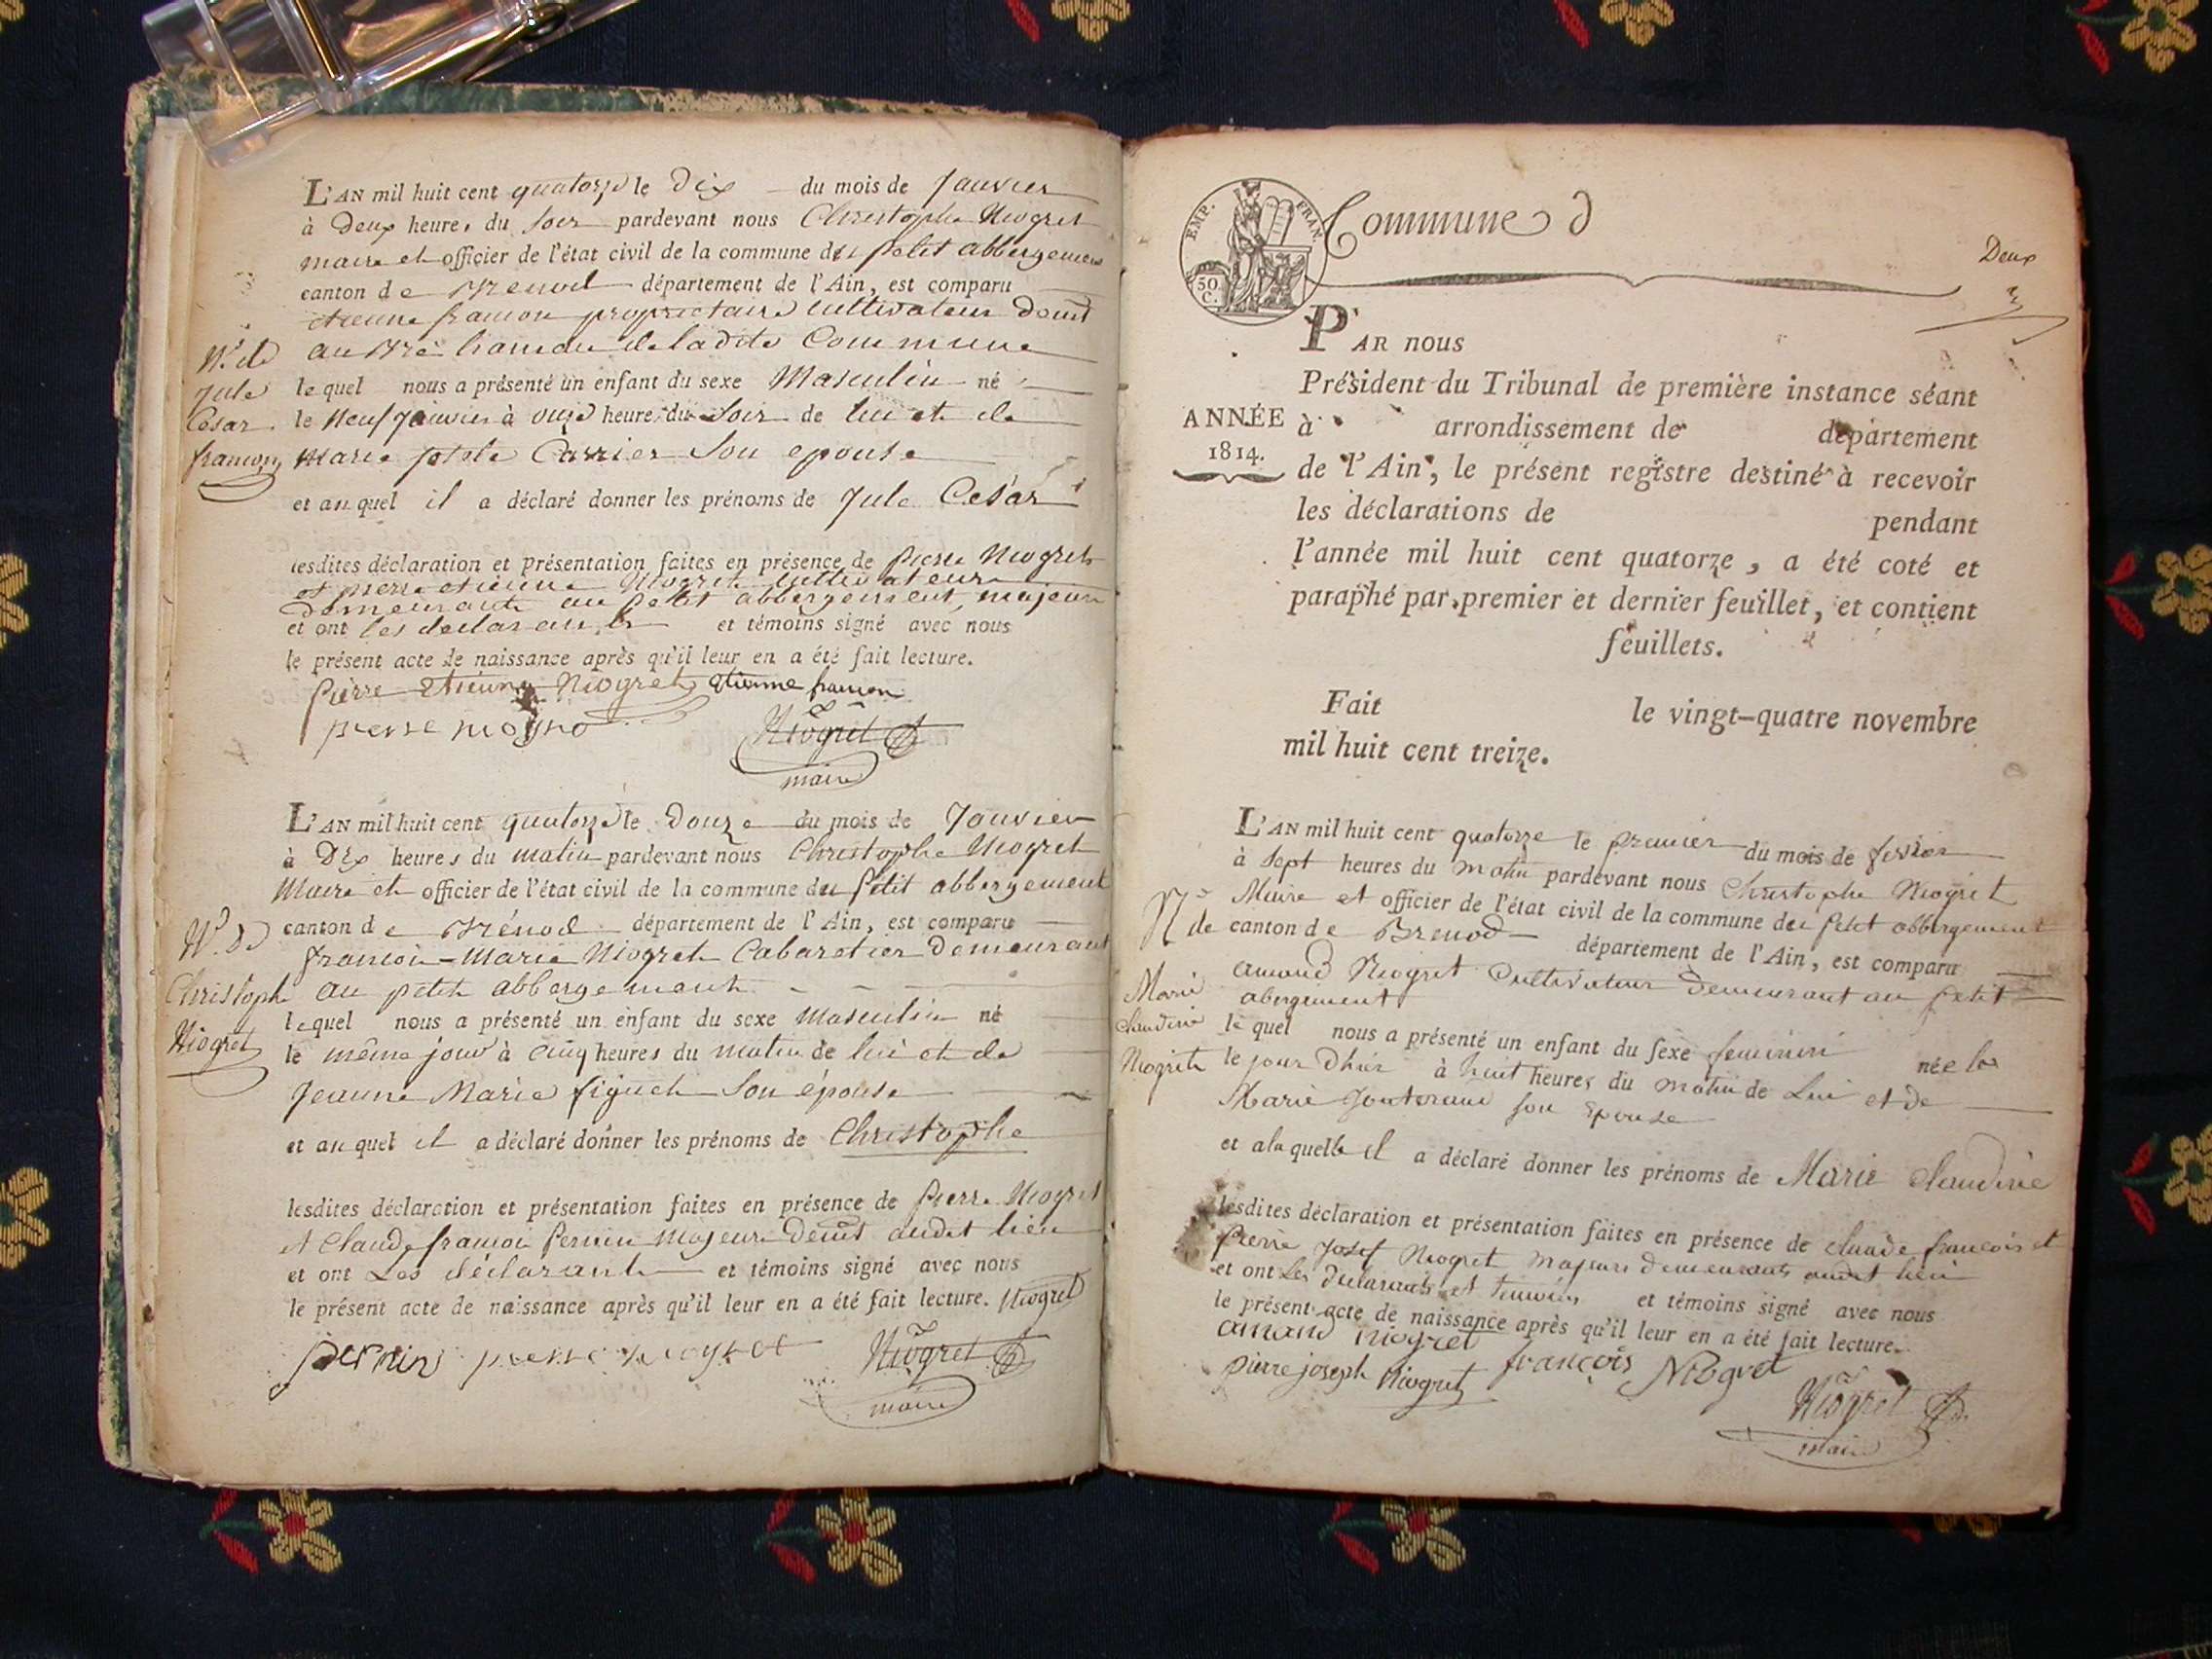 L'AN mil huit cent quatorze le Dix du mois de Janvier
à Deux heure, du soir pardevant nous Christophe Niogret
maire et officier de l'état civil de la commune du petit abbergement
canton de Brenod département de l'Ain, est comparu
etienne francon propriétaire cultivateur demt
au hameau de ladite Commune
lequel nous a présenté un enfant du sexe Masculin né
le Neuf Janvier à onze heure, du soir de lui et de
Marie Carrier son epouse
et auquel il a déclaré donner les prénoms de Jule Cesar
N.ce de
Jule
Cesar
francon
lesdites déclaration et présentation faites en présence de pierre Niogret
et pierre etienne Niogret cultivateurs
demeurants au petit abbergement, majeurs
et ont les declarants et témoins signé avec nous
le présent acte de naissance après qu'il leur en a été fait lecture.
pierre etienne Niogret etienne francon
pierre niogret
Niogret
maire
L'AN mil huit cent quatorze le Douze du mois de Janvier
à Dix heures du matin pardevant nous Christophe Niogret
Maire et officier de l'état civil de la commune du petit abbergement
canton de Brénod département de l'Ain, est comparu
françois-Marie Niogret Cabaretier Demeurant
au petit abbergement
lequel nous a présenté un enfant du sexe Masculin né
le même jour à cinq heures du matin de lui et de
Jeanne Marie figuet son épouse
et auquel il a déclaré donner les prénoms de Christophe
N.ce de
Christophe
Niogret
lesdites déclaration et présentation faites en présence de pierre Niogret
et Claude françois pernin majeurs demt audit lieu
et ont Les déclarants et témoins signé avec nous
le présent acte de naissance après qu'il leur en a été fait lecture. Niogret
pernin pierre niogret
Niogret
maire
EMP. FRAN.
50. C.
Commune d
Deux
PAR nous
Président du Tribunal de première instance séant
à arrondissement de département
de l'Ain, le présent registre destiné à recevoir
les déclarations de pendant
l'année mil huit cent quatorze, a été coté et
paraphé par premier et dernier feuillet, et contient
feuillets.
ANNÉE
1814.
Fait le vingt-quatre novembre
mil huit cent treize.
L'AN mil huit cent quatorze le premier du mois de fevrier
à sept heures du matin pardevant nous Christophe Niogret
Maire et officier de l'état civil de la commune du petit abbergement
canton de Brenod département de l'Ain, est comparu
amand Niogret Cultivateur demeurant au petit
abergement
lequel nous a présenté un enfant du sexe feminin née le
le jour dhier à huit heures du matin de Lui et de
Marie son Epouse
et alaquelle il a déclaré donner les prénoms de Marie Claudine
N.ce de
Marie
Claudine
Niogret
lesdites déclaration et présentation faites en présence de claude françois et
pierre Josef Niogret majeurs demeurants audit lieu
et ont les declarants et temoins et témoins signé avec nous
le présent acte de naissance après qu'il leur en a été fait lecture.
amand niogret
pierre joseph Niogret françois Niogret
Niogret
maire